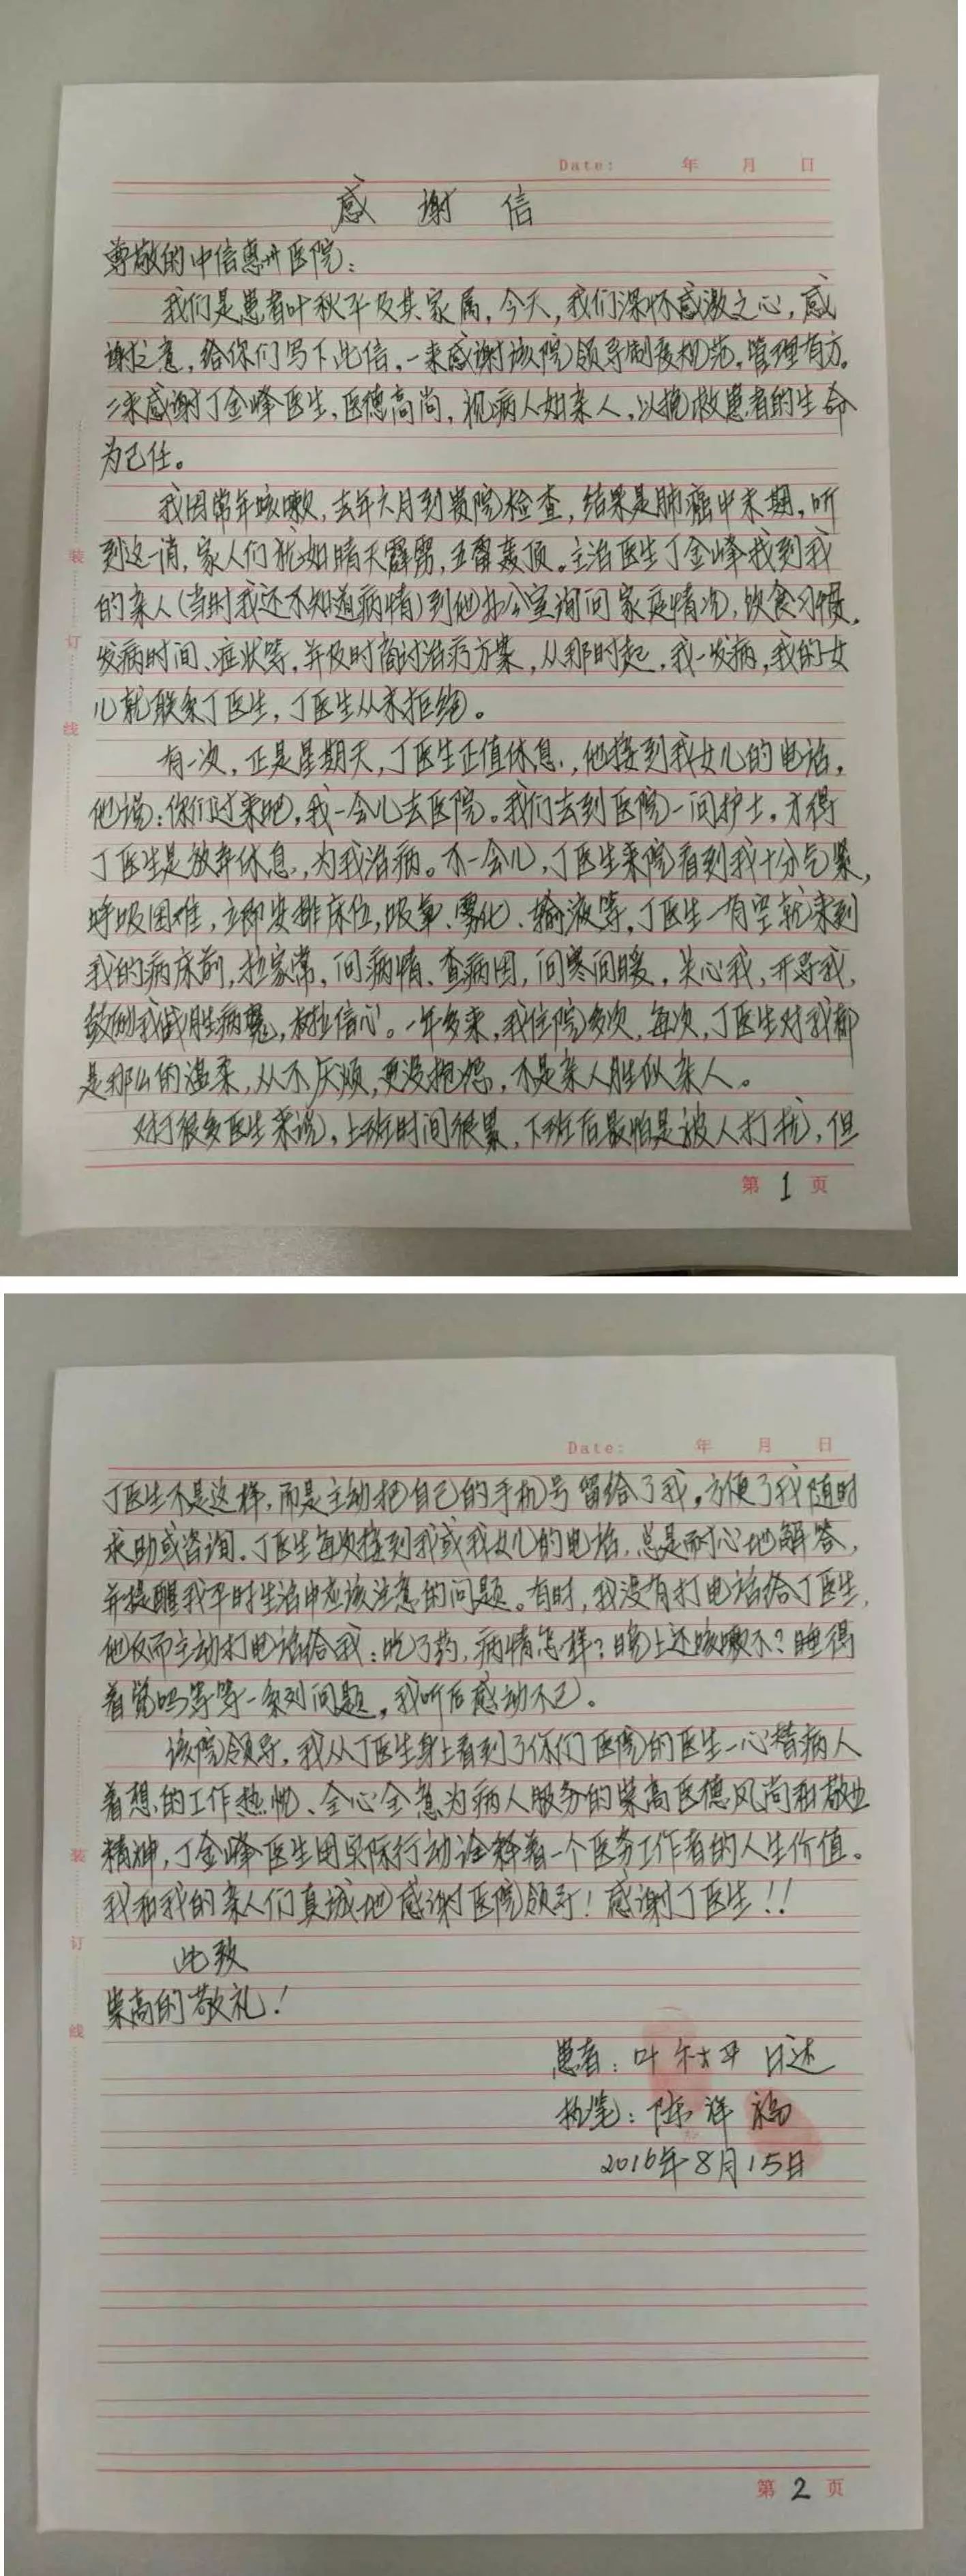 Date: 年 月 日
感 谢 信
尊敬的中信惠州医院：
我们是患者叶秋平及其家属，今天，我们深怀感激之心，感
谢之意，给你们写下此信，一来感谢该院领导制度规范，管理有方。
二来感谢丁金峰医生，医德高尚，视病人如亲人，以挽救患者的生命
为己任。
我因常年咳嗽，去年六月到贵院检查，结果是肺癌中末期，听
到这一消，家人们犹如晴天霹雳，五雷轰顶。主治医生丁金峰找到我
的亲人（当时我还不知道病情）到他办公室询问家庭情况，饮食习惯，
发病时间、症状等，并及时商讨治疗方案，从那时起，我一发病，我的女
儿就联系丁医生，丁医生从未拒绝。
有一次，正是星期天，丁医生正值休息，他接到我女儿的电话，
他说：你们过来吧，我一会儿去医院。我们去到医院一问护士，才得
丁医生是放弃休息，为我治病。不一会儿，丁医生来院看到我十分气紧，
呼吸困难，立即安排床位，吸氧、雾化、输液等，丁医生一有空就来到
我的病床前，拉家常，问病情、查病因，问寒问暖，关心我，开导我，
鼓励我战胜病魔，树立信心。一年多来，我住院多次，每次，丁医生对我都
是那么的温柔，从不厌烦，更没抱怨，不是亲人胜似亲人。
对于很多医生来说，上班时间很累，下班后最怕是被人打扰，但
装
订
线
第 1 页
Date: 年 月 日
丁医生不是这样，而是主动把自己的手机号留给了我，方便了我随时
求助或咨询。丁医生每次接到我或我女儿的电话，总是耐心地解答，
并提醒我平时生活中应该注意的问题。有时，我没有打电话给丁医生，
他反而主动打电话给我：吃了药，病情怎样？晚上还咳嗽不？睡得
着觉吗等等一系列问题，我听后感动不已。
该院领导，我从丁医生身上看到了你们医院的医生一心替病人
着想的工作热忱、全心全意为病人服务的崇高医德风尚和敬业
精神，丁金峰医生用实际行动诠释着一个医务工作者的人生价值。
我和我的亲人们真诚地感谢医院领导！感谢丁医生！！
此致
崇高的敬礼！
患者：叶秋平 口述
执笔：陈祥福
2016年8月15日
装
订
线
第 2 页